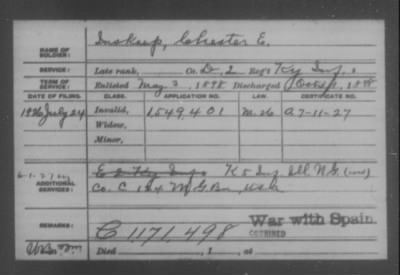 NAME OF SOLDIER: Inskeep, Chester E.
SERVICE: Late rank, Co. D, 2 Reg't Ky Inf.
TERM OF SERVICE: Enlisted May 3, 1898 Discharged Oct 31, 1898
DATE OF FILING. CLASS. APPLICATION NO. LAW. CERTIFICATE NO.
1926 July 24 Invalid, 1549401 M-26 A 7-11-27
Widow,
Minor,
ADDITIONAL SERVICES: E 2 Ky Inf K 5 Inf Ill. N.G.
Co. C 124 M G Bn, USA
REMARKS: C 1171,498 War with Spain.
COMBINED
Died , 1 , at